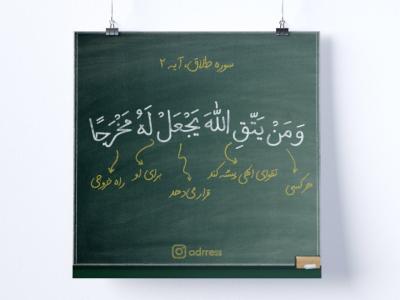 سوره طلاق، آیه ۲
وَمَنْ يَتَّقِ اللهَ يَجْعَلْ لَهُ مَخْرَجًا
هرکسی تقوای الهی پیشه کند قرار می‌دهد برای او راه خروجی
adrress